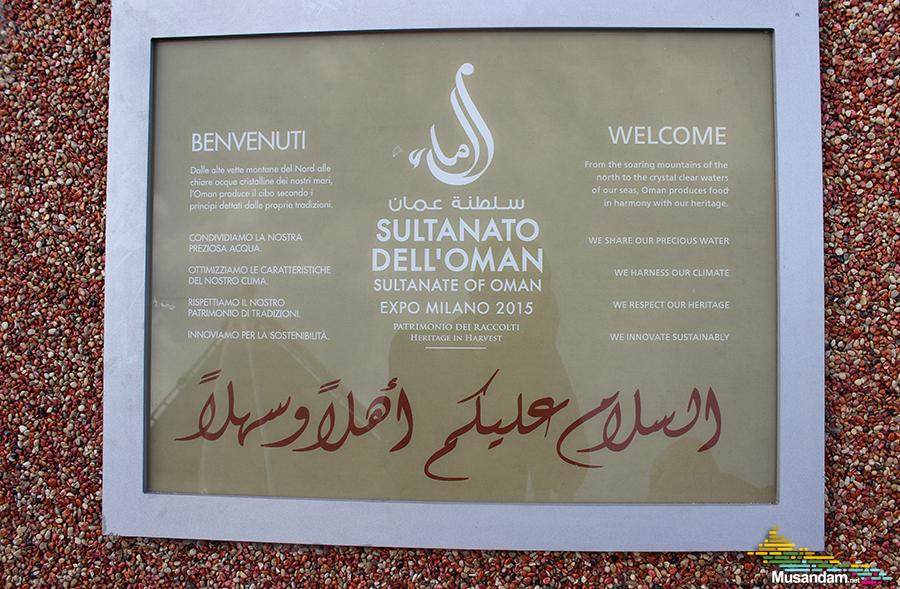 BENVENUTI
Dalle alte vette montane del Nord alle
chiare acque cristalline dei nostri mari,
l'Oman produce il cibo secondo i
principi dettati dalle proprie tradizioni.
CONDIVIDIAMO LA NOSTRA
PREZIOSA ACQUA.
OTTIMIZZIAMO LE CARATTERISTICHE
DEL NOSTRO CLIMA.
RISPETTIAMO IL NOSTRO
PATRIMONIO DI TRADIZIONI.
INNOVIAMO PER LA SOSTENIBILITÀ.
سلطنة عمان
SULTANATO
DELL'OMAN
SULTANATE OF OMAN
EXPO MILANO 2015
PATRIMONIO DEI RACCOLTI
HERITAGE IN HARVEST
WELCOME
From the soaring mountains of the
north to the crystal clear waters
of our seas, Oman produces food
in harmony with our heritage.
WE SHARE OUR PRECIOUS WATER
WE HARNESS OUR CLIMATE
WE RESPECT OUR HERITAGE
WE INNOVATE SUSTAINABLY
السلام عليكم أهلاً وسهلاً
Musandam.net